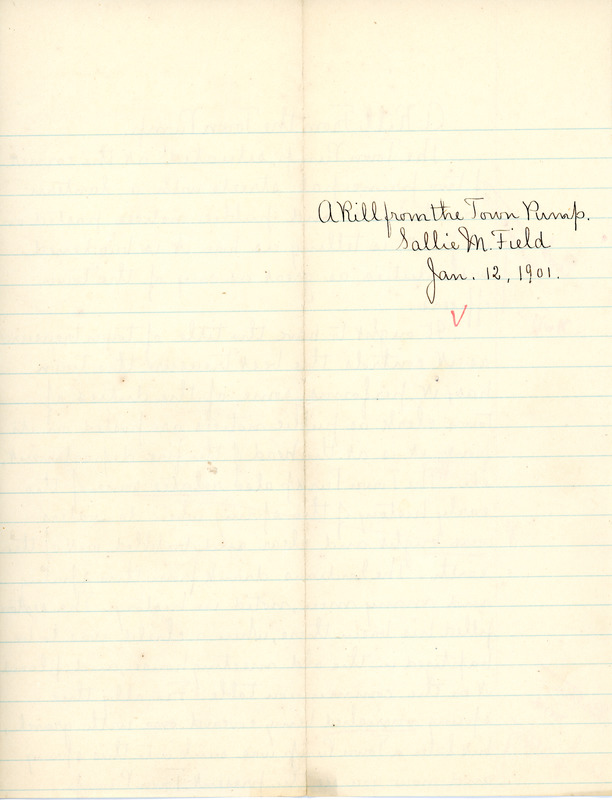 A Rill from the Town Pump.
Sallie M. Field
Jan. 12, 1901.